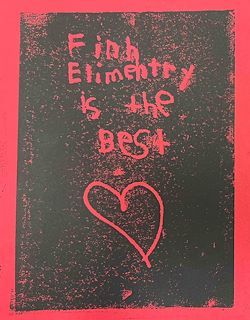 Finh
Elimentry
is the
Best